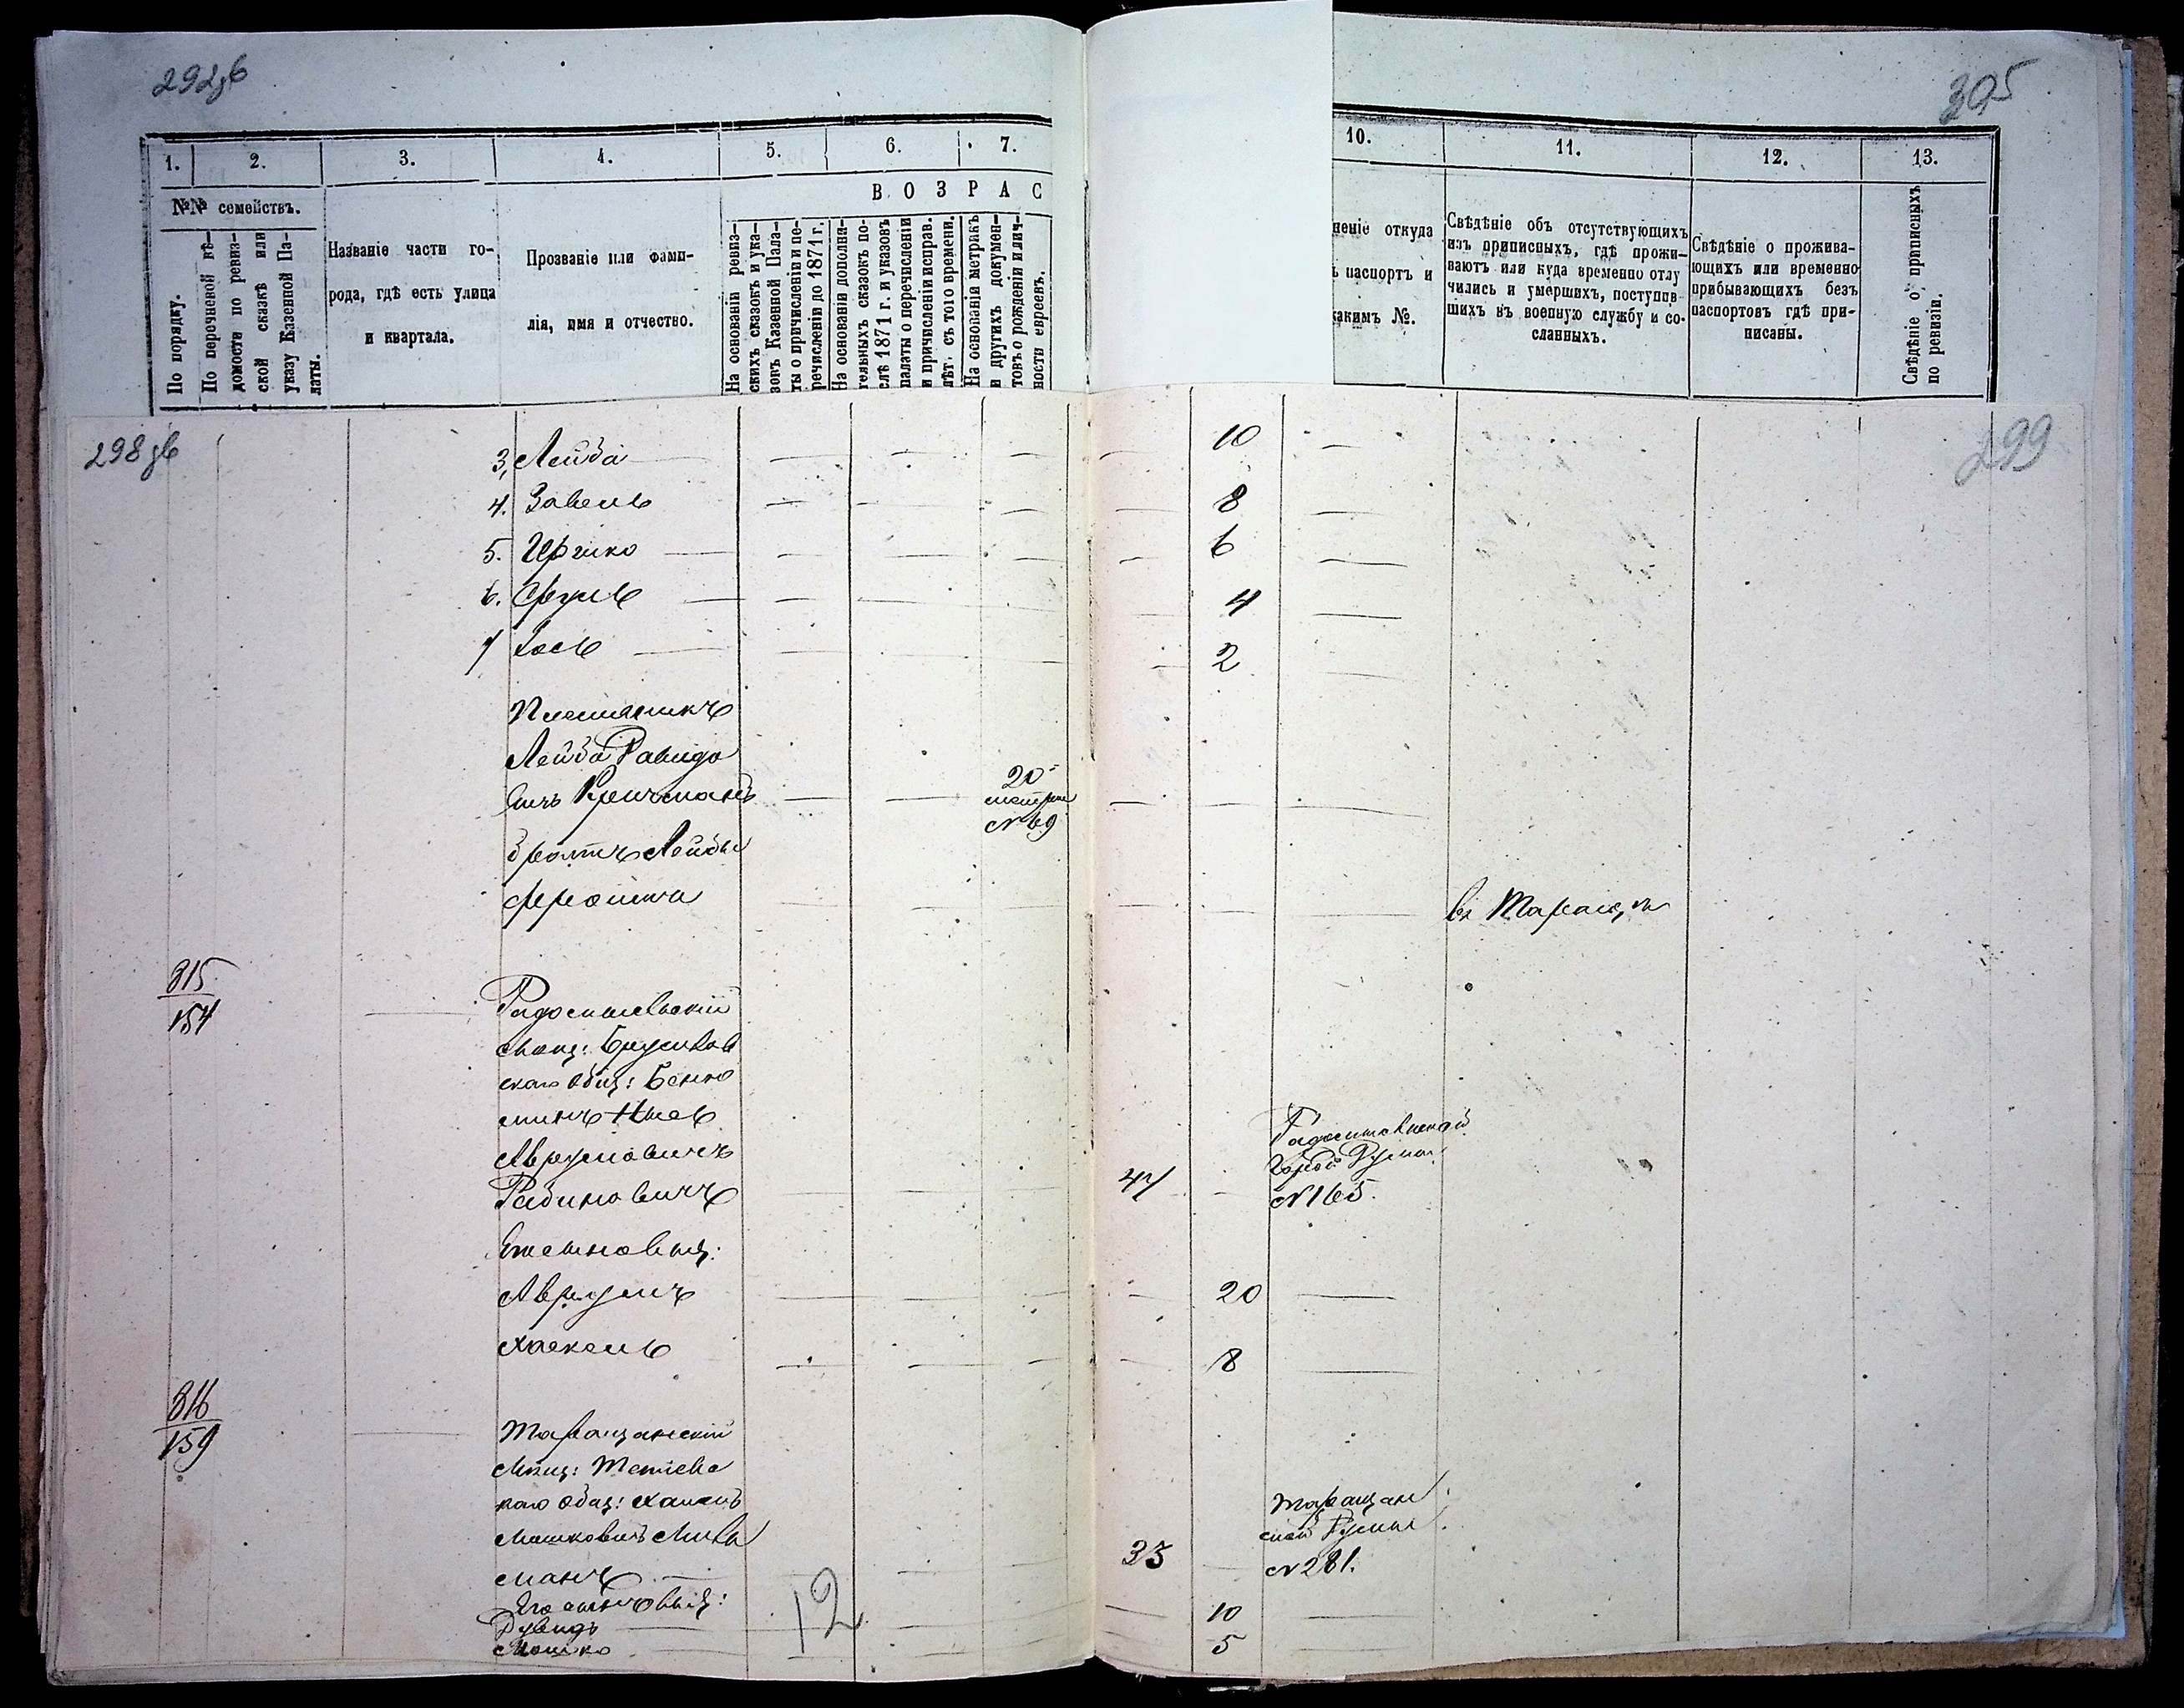 292об
305
1. 2. 3. 4. 5. 6. 7. 10. 11. 12. 13.
ВОЗРАС
№№ семействъ.
По порядку.
По перечневой вѣ-
домости по ревиз-
ской сказкѣ или
указу Казенной Па-
латы.
Названіе части го-
рода, гдѣ есть улица
и квартала.
Прозваніе или фами-
лія, имя и отчество.
На основаніи ревиз-
скихъ сказокъ и ука-
зовъ Казенной Пала-
ты о причисленіи и пе-
речисленіи до 1871 г.
На основаніи дополни-
тельныхъ сказокъ по-
слѣ 1871 г. и указовъ
палаты о перечисленіи
и причисленіи исправ.
лѣт. съ того времени.
На основаніи метрикъ
и другихъ докумен-
товъ о рожденіи и лич-
ности евреевъ.
неніе откуда
ъ паспортъ и
какимъ №.
Свѣдѣніе объ отсутствующихъ
изъ приписныхъ, гдѣ прожи-
ваютъ или куда временно отлу
чились и умершихъ, поступив-
шихъ въ военную службу и со-
сланныхъ.
Свѣдѣніе о прожива-
ющихъ или временно
прибывающихъ безъ
паспортовъ гдѣ при-
писаны.
Свѣдѣніе о приписныхъ
по ревизіи.
298об
299
3, Лейба — — — — — 10 —
4. Завель — — — — 8 —
5. Ицко — — — — — 6 —
6. Сруль — — — 4 —
7 Іось — — — — 2 —
Племянникъ
Лейба Давидо
вичъ Кричманъ — — 20 — — —
метрик
№ 69
братъ Лейбы
Фроимъ — — — — в. Таращѣ
315
154
Радомысльскій
мѣщ: Брусилов
скаго общ: Беню
минъ
Аврумовичъ
Рабиновичъ — — — 47 — Радомысльской
Город Думы
№ 165.
Его сыновья:
Аврумъ — — — — 20 —
Хаскель — — — — 8 —
316
159
Таращанскій
Мѣщ: Тетіевс
каго общ:
Мошковичъ
манъ — — 33 — Таращан
ской Думы
№ 281.
Его сыновья:
Дувидъ — — — 10 —
Мошко — — 5 —
12